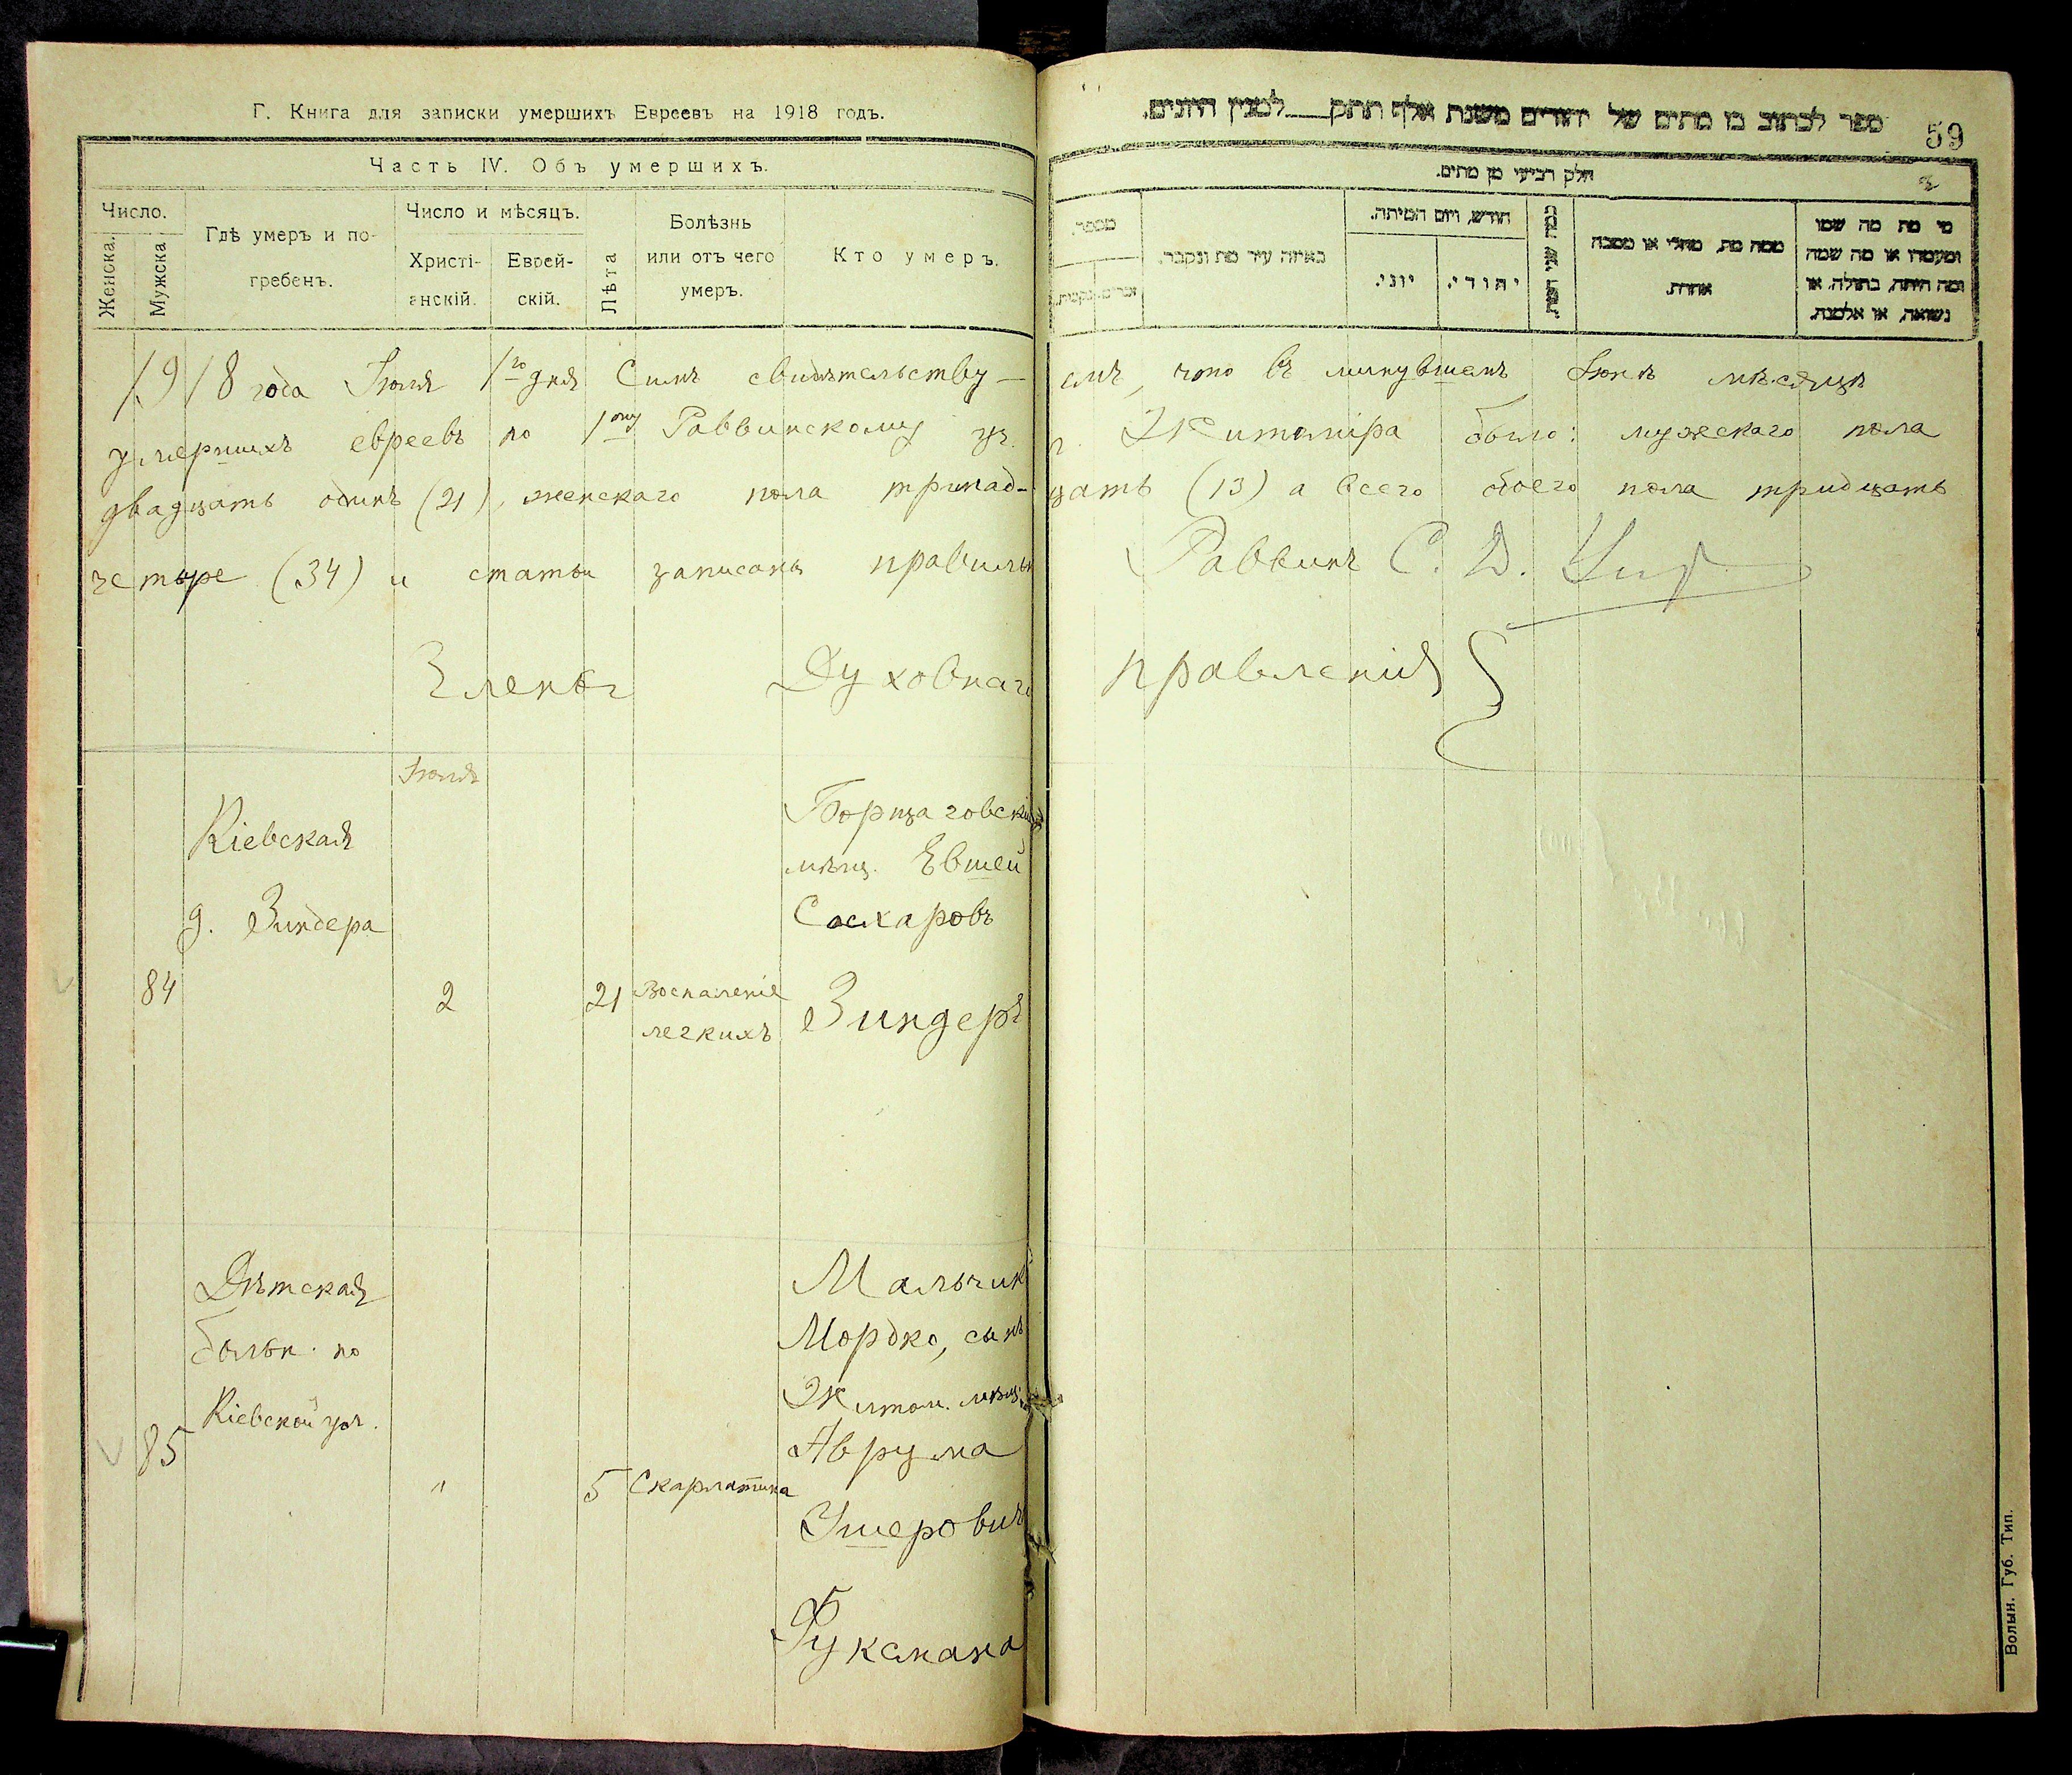 Г. Книга для записки умершихъ Евреевъ на 1918 годъ.
Часть IV. Объ умершихъ.
Число.
Женска.
Мужска
Гдѣ умеръ и по-
гребенъ.
Число и мѣсяцъ.
Христі-
анскій.
Еврей-
скій.
Лѣта
Болѣзнь
или отъ чего
умеръ.
Кто умеръ.
ספר לכתוב בו מתים של יהודים משנת אלף תתק___למנין היונים.
59
חלק רביעי מן מתים.
מספר.
זכרים.
נקבות.
באיזה עיר מת ונקבר.
חודש, ויום המיתה.
יוני.
יהודי.
כמה שני המת.
ממה מת, מחלי או מסבה
אחרת.
מי מת מה שמו
ומעמדו או מה שמה
ומה היתה, בתולה, או
נשואה, או אלמנה.
1918 года Іюля 1го дня Симъ свидѣтельству-
емъ, что въ минувшемъ Іюнѣ мѣсяцѣ
умершихъ евреевъ по 1ому Раввинскому уч.
г. Житоміра было: мужескаго пола
двадцать одинъ (21), женскаго пола тринад-
цать (13) а всего обоего пола тридцать
четыре (34) и статьи записаны правильн
Раввинъ С. Д.
Члены Духовнаго
правленія
Іюля
Кіевская
д. Зиндера
84
2
21
Воспаленіе
легкихъ
Борщаговскій
мѣщ. Евшей
Соскаровъ
Зиндеръ
Дѣтская
больн. по
Кіевской ул.
85
"
5
Скарлатина
Мальчик
Мордко, сынъ
Житом. мѣщ.
Аврума
Ушерович
Фуксмана
Волын. Губ. Тип.